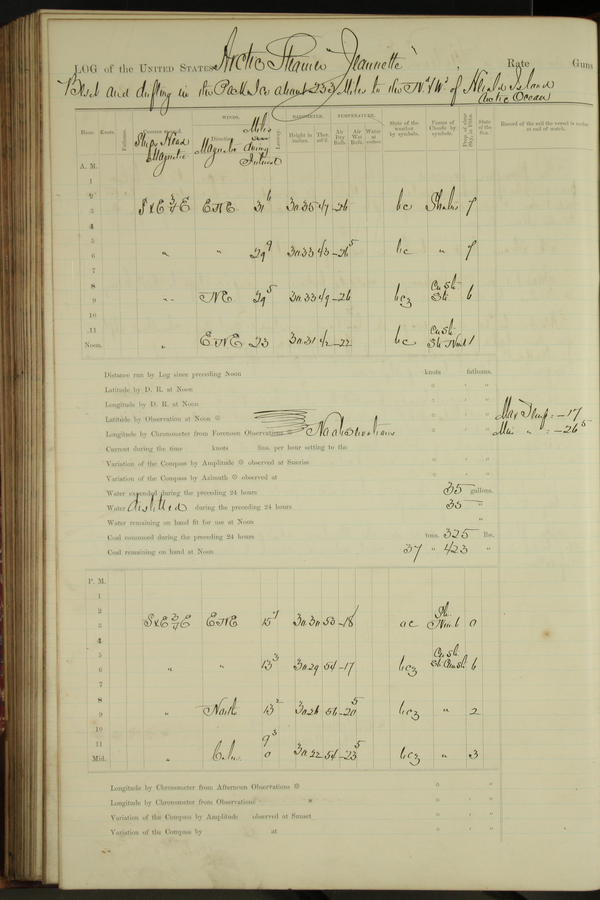 LOG of the UNITED STATES Arctic Steamer "Jeannette" Rate Guns
Beset and drifting in the Pack Ice about 233 Miles to the N'd & W'd of Herald Island
Arctic Ocean
WINDS. BAROMETER. TEMPERATURE.
Hour. Knots. Fathoms. Ship's Head Magnetic Direction Magnetic Miles during Interval Leeway. Height in inches. Ther. att'd. Air Dry Bulb. Air Wet Bulb. Water at surface. State of the weather by symbols. Forms of Clouds by symbols. Prop. of clear Sky, in 10ths. State of the Sea. Record of the sail the vessel is under at end of watch.
A. M.
1
2
3 S & E 3/4 E ENE 31 6 30.35 47 -26 bc Stratus 7
4
5
6 " " 29 9 30.33 43 -26 5 bc " 7
7
8
9 " NE 29 5 30.33 49 -26 bcz Cu St Str 6
10
11
Noon. " ENE 23 30.31 42 -22 bc Cu St. St. Nimb 1
Distance run by Log since preceding Noon knots fathoms.
Latitude by D. R. at Noon ° ' "
Longitude by D. R. at Noon ° ' "
Latitude by Observation at Noon ° ' " Max Temp = -17
Longitude by Chronometer from Forenoon Observations No observations ° ' " Min " = -26 5
Current during the time knots fms. per hour setting to the
Variation of the Compass by Amplitude observed at Sunrise ° ' "
Variation of the Compass by Azimuth observed at ° ' "
Water expended during the preceding 24 hours 35 gallons.
Water distilled during the preceding 24 hours 35 "
Water remaining on hand fit for use at Noon "
Coal consumed during the preceding 24 hours tons. 325 lbs.
Coal remaining on hand at Noon 37 " 423 "
P. M.
1
2 S & E 3/4 E ENE 15 7 30.30 53 -18 oc St. Nimb 0
3
4
5
6 " " 13 3 30.29 54 -17 bcz Cu St. 6
7
8
9 " North 13 2 30.26 56 -20 5 bcz " 2
10
11
Mid. " Calm 9 3 0 30.22 54 -23 5 bcz " 3
Longitude by Chronometer from Afternoon Observations ° ' "
Longitude by Chronometer from Observations ° ' "
Variation of the Compass by Amplitude observed at Sunset ° ' "
Variation of the Compass by at ° ' "